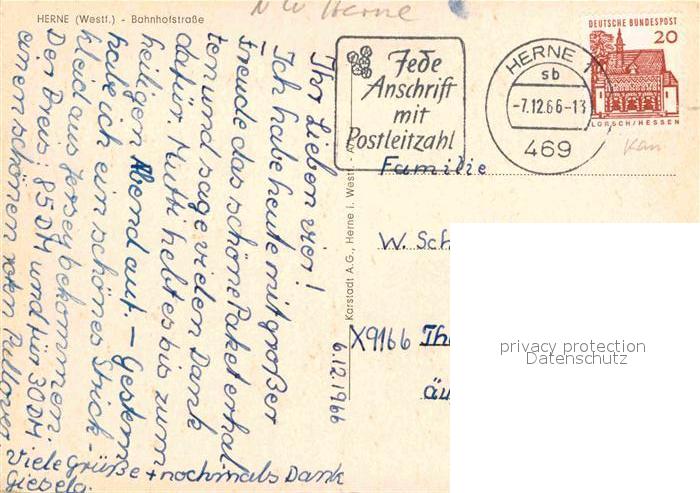 HERNE (Westf.) - Bahnhofstraße
NW Herne
Jede
Anschrift
mit
Postleitzahl
HERNE 1
sb
-7.12.66-13
469
DEUTSCHE BUNDESPOST
20
LORSCH/HESSEN
6.12.1966
Ihr Lieben vier!
Ich habe heute mit großer
Freude das schöne Paket erhal-
ten und sage vielen Dank
dafür. Mutti hebt es bis zum
heiligen Abend auf. – Gestern
habe ich ein schönes Strick-
kleid aus Jersey bekommen.
Der Preis: 85 DM und für 30 DM
einen schönen roten Pullover.
Viele Grüße + nochmals Dank
Giesela.
Karstadt A.G., Herne i. Westf.
Familie
W. Sch
X9166 Th
äu
privacy protection
Datenschutz